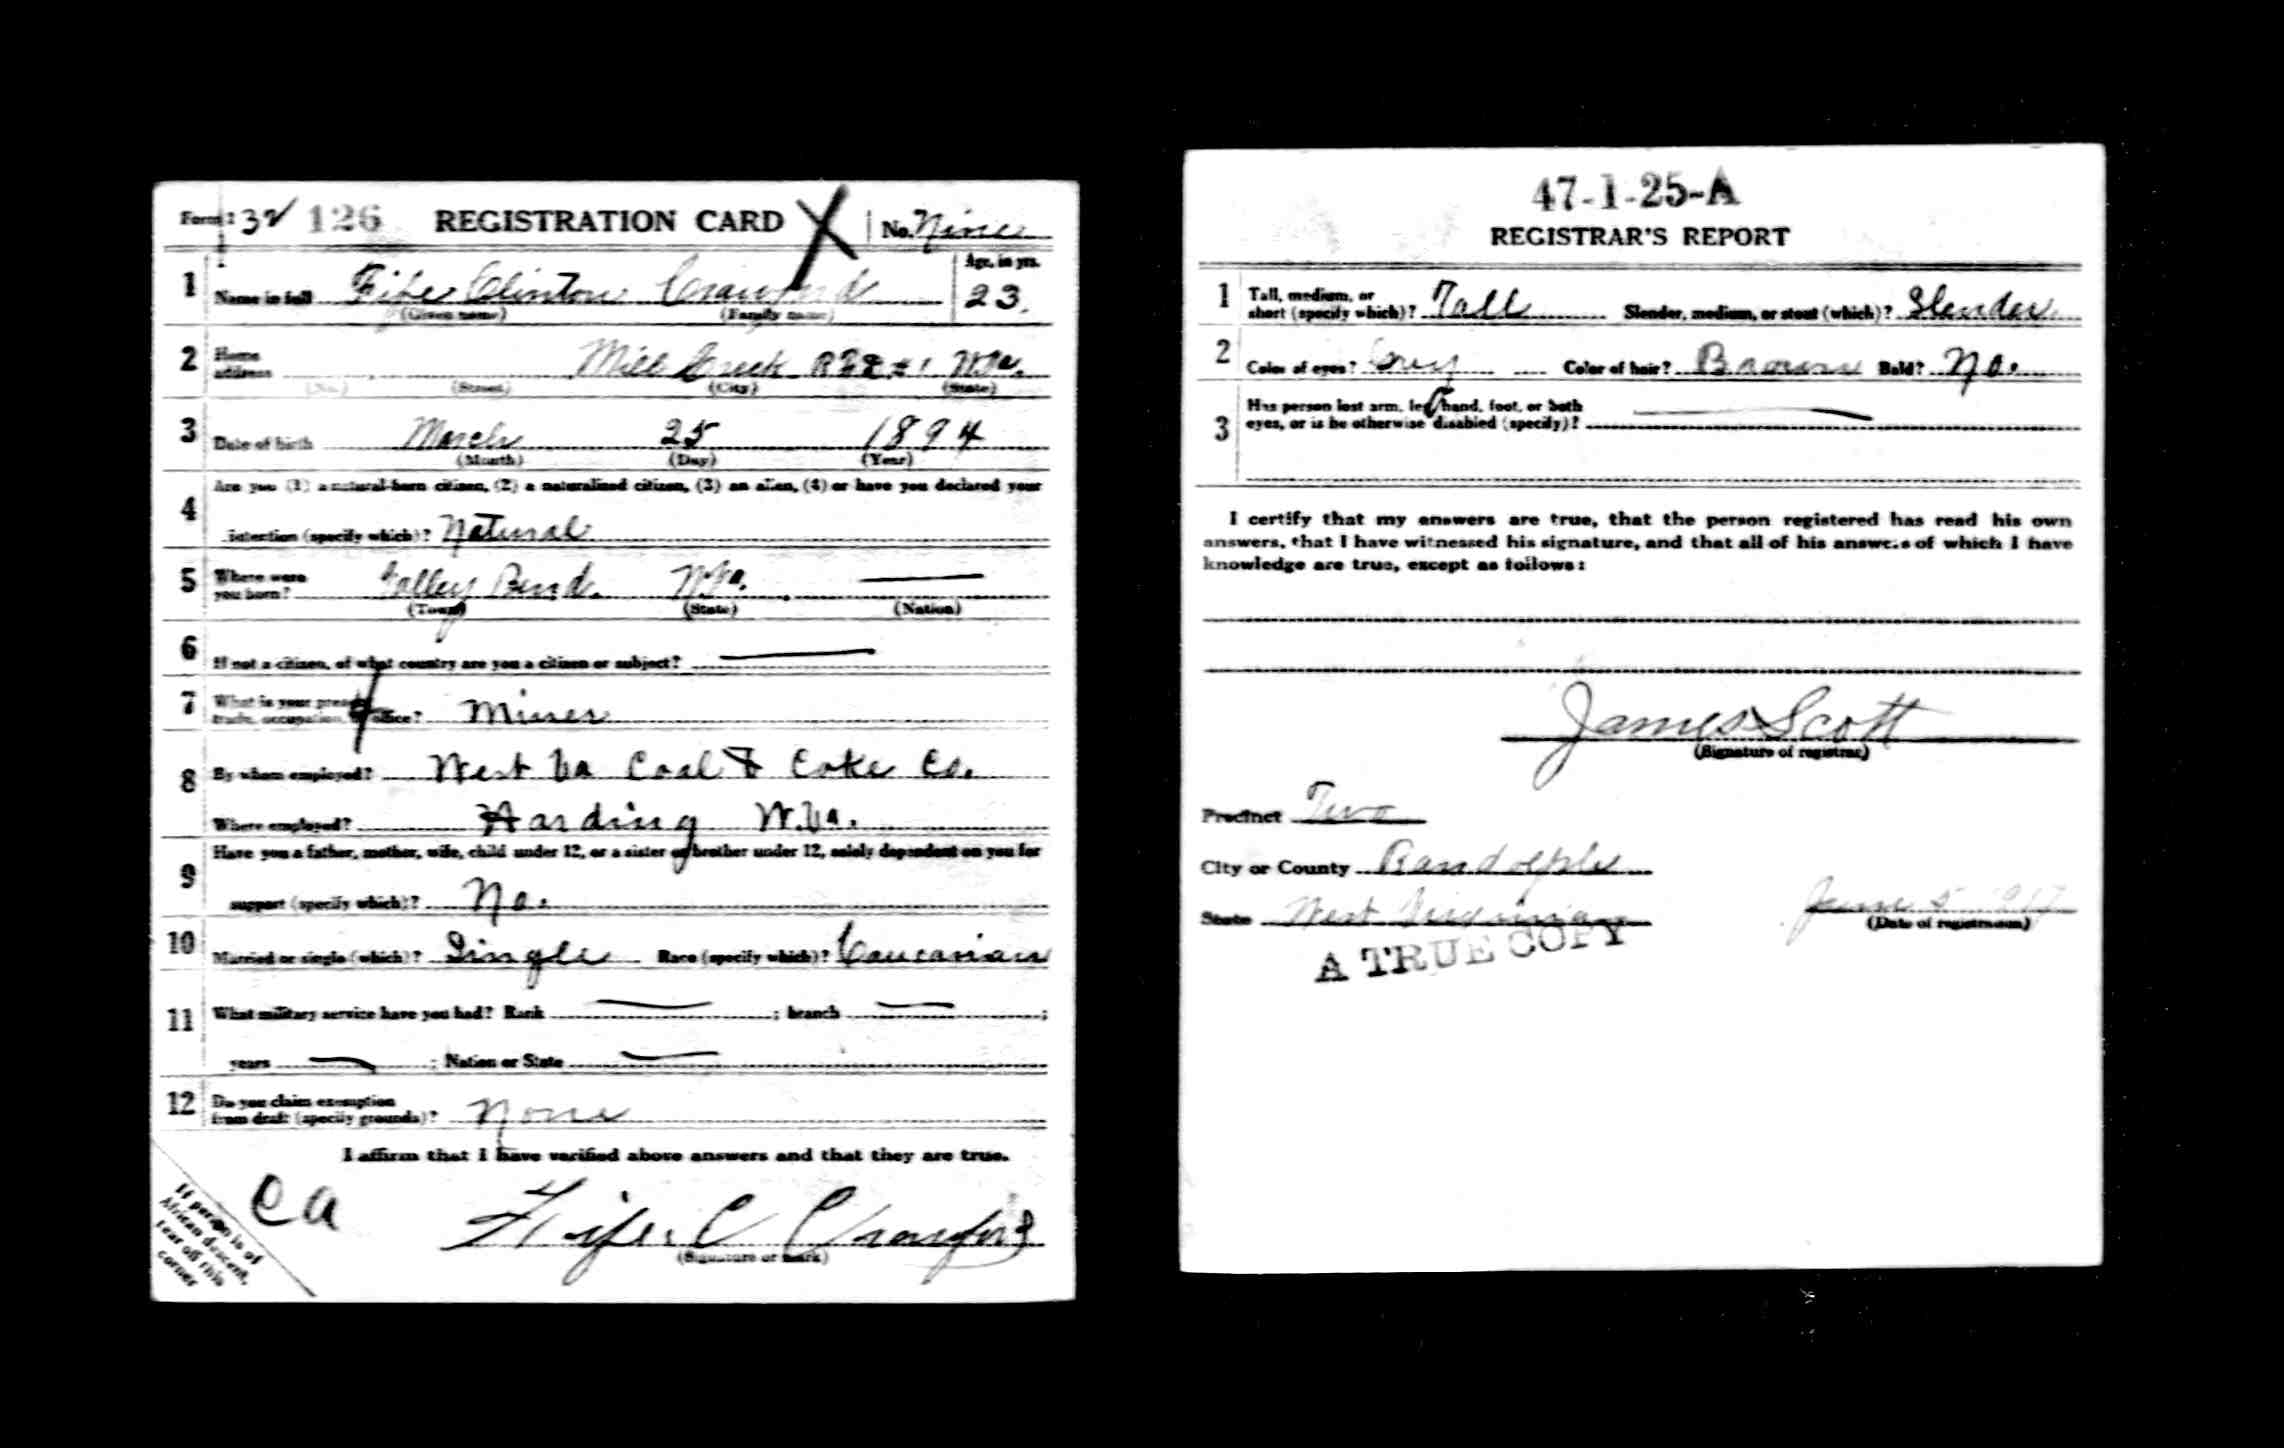 Form 1 32 126 REGISTRATION CARD X No. Nine
1 Name in full Fife Clinton Crawford Age, in yrs. 23.
(Given name) (Family name)
2 Home address Mill Creek RFD #1 W.Va.
(No.) (Street) (City) (State)
3 Date of birth March 25 1894
(Month) (Day) (Year)
4 Are you (1) a natural-born citizen, (2) a naturalized citizen, (3) an alien, (4) or have you declared your
intention (specify which)? Natural
5 Where were you born? Valley Bend. W.Va.
(Town) (State) (Nation)
6 If not a citizen, of what country are you a citizen or subject?
7 What is your present trade, occupation, or office? Miner
8 By whom employed? West Va Coal & Coke Co.
Where employed? Harding W.Va.
9 Have you a father, mother, wife, child under 12, or a sister or brother under 12, solely dependent on you for
support (specify which)? No.
10 Married or single (which)? Single Race (specify which)? Caucasian
11 What military service have you had? Rank ; branch ;
years ; Nation or State
12 Do you claim exemption from draft (specify grounds)? None
I affirm that I have verified above answers and that they are true.
Fife C Crawford
(Signature or mark)
ca
If person is of
African descent,
tear off this
corner
47-1-25-A
REGISTRAR'S REPORT
1 Tall, medium, or short (specify which)? Tall Slender, medium, or stout (which)? Slender
2 Color of eyes? Grey Color of hair? Brown Bald? No.
3 Has person lost arm, leg, hand, foot, or both
eyes, or is he otherwise disabled (specify)?
I certify that my answers are true, that the person registered has read his own
answers, that I have witnessed his signature, and that all of his answers of which I have
knowledge are true, except as follows:
James Scott
(Signature of registrar)
Precinct Two
City or County Randolph
State West Virginia June 5 1917
(Date of registration)
A TRUE COPY